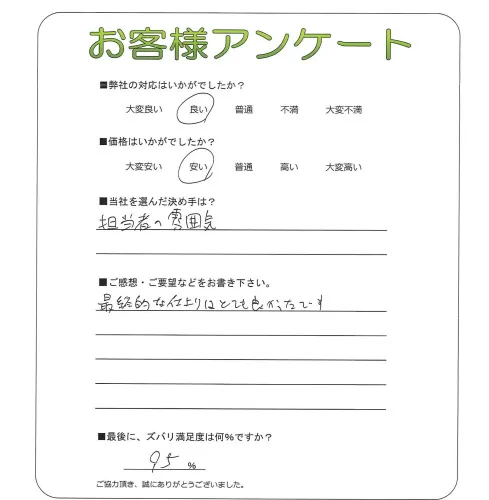 お客様アンケート
■弊社の対応はいかがでしたか？
大変良い 良い 普通 不満 大変不満
■価格はいかがでしたか？
大変安い 安い 普通 高い 大変高い
■当社を選んだ決め手は？
担当者の雰囲気
■ご感想・ご要望などをお書き下さい。
最終的な仕上りはとても良かったです
■最後に、ズバリ満足度は何％ですか？
95 %
ご協力頂き、誠にありがとうございました。